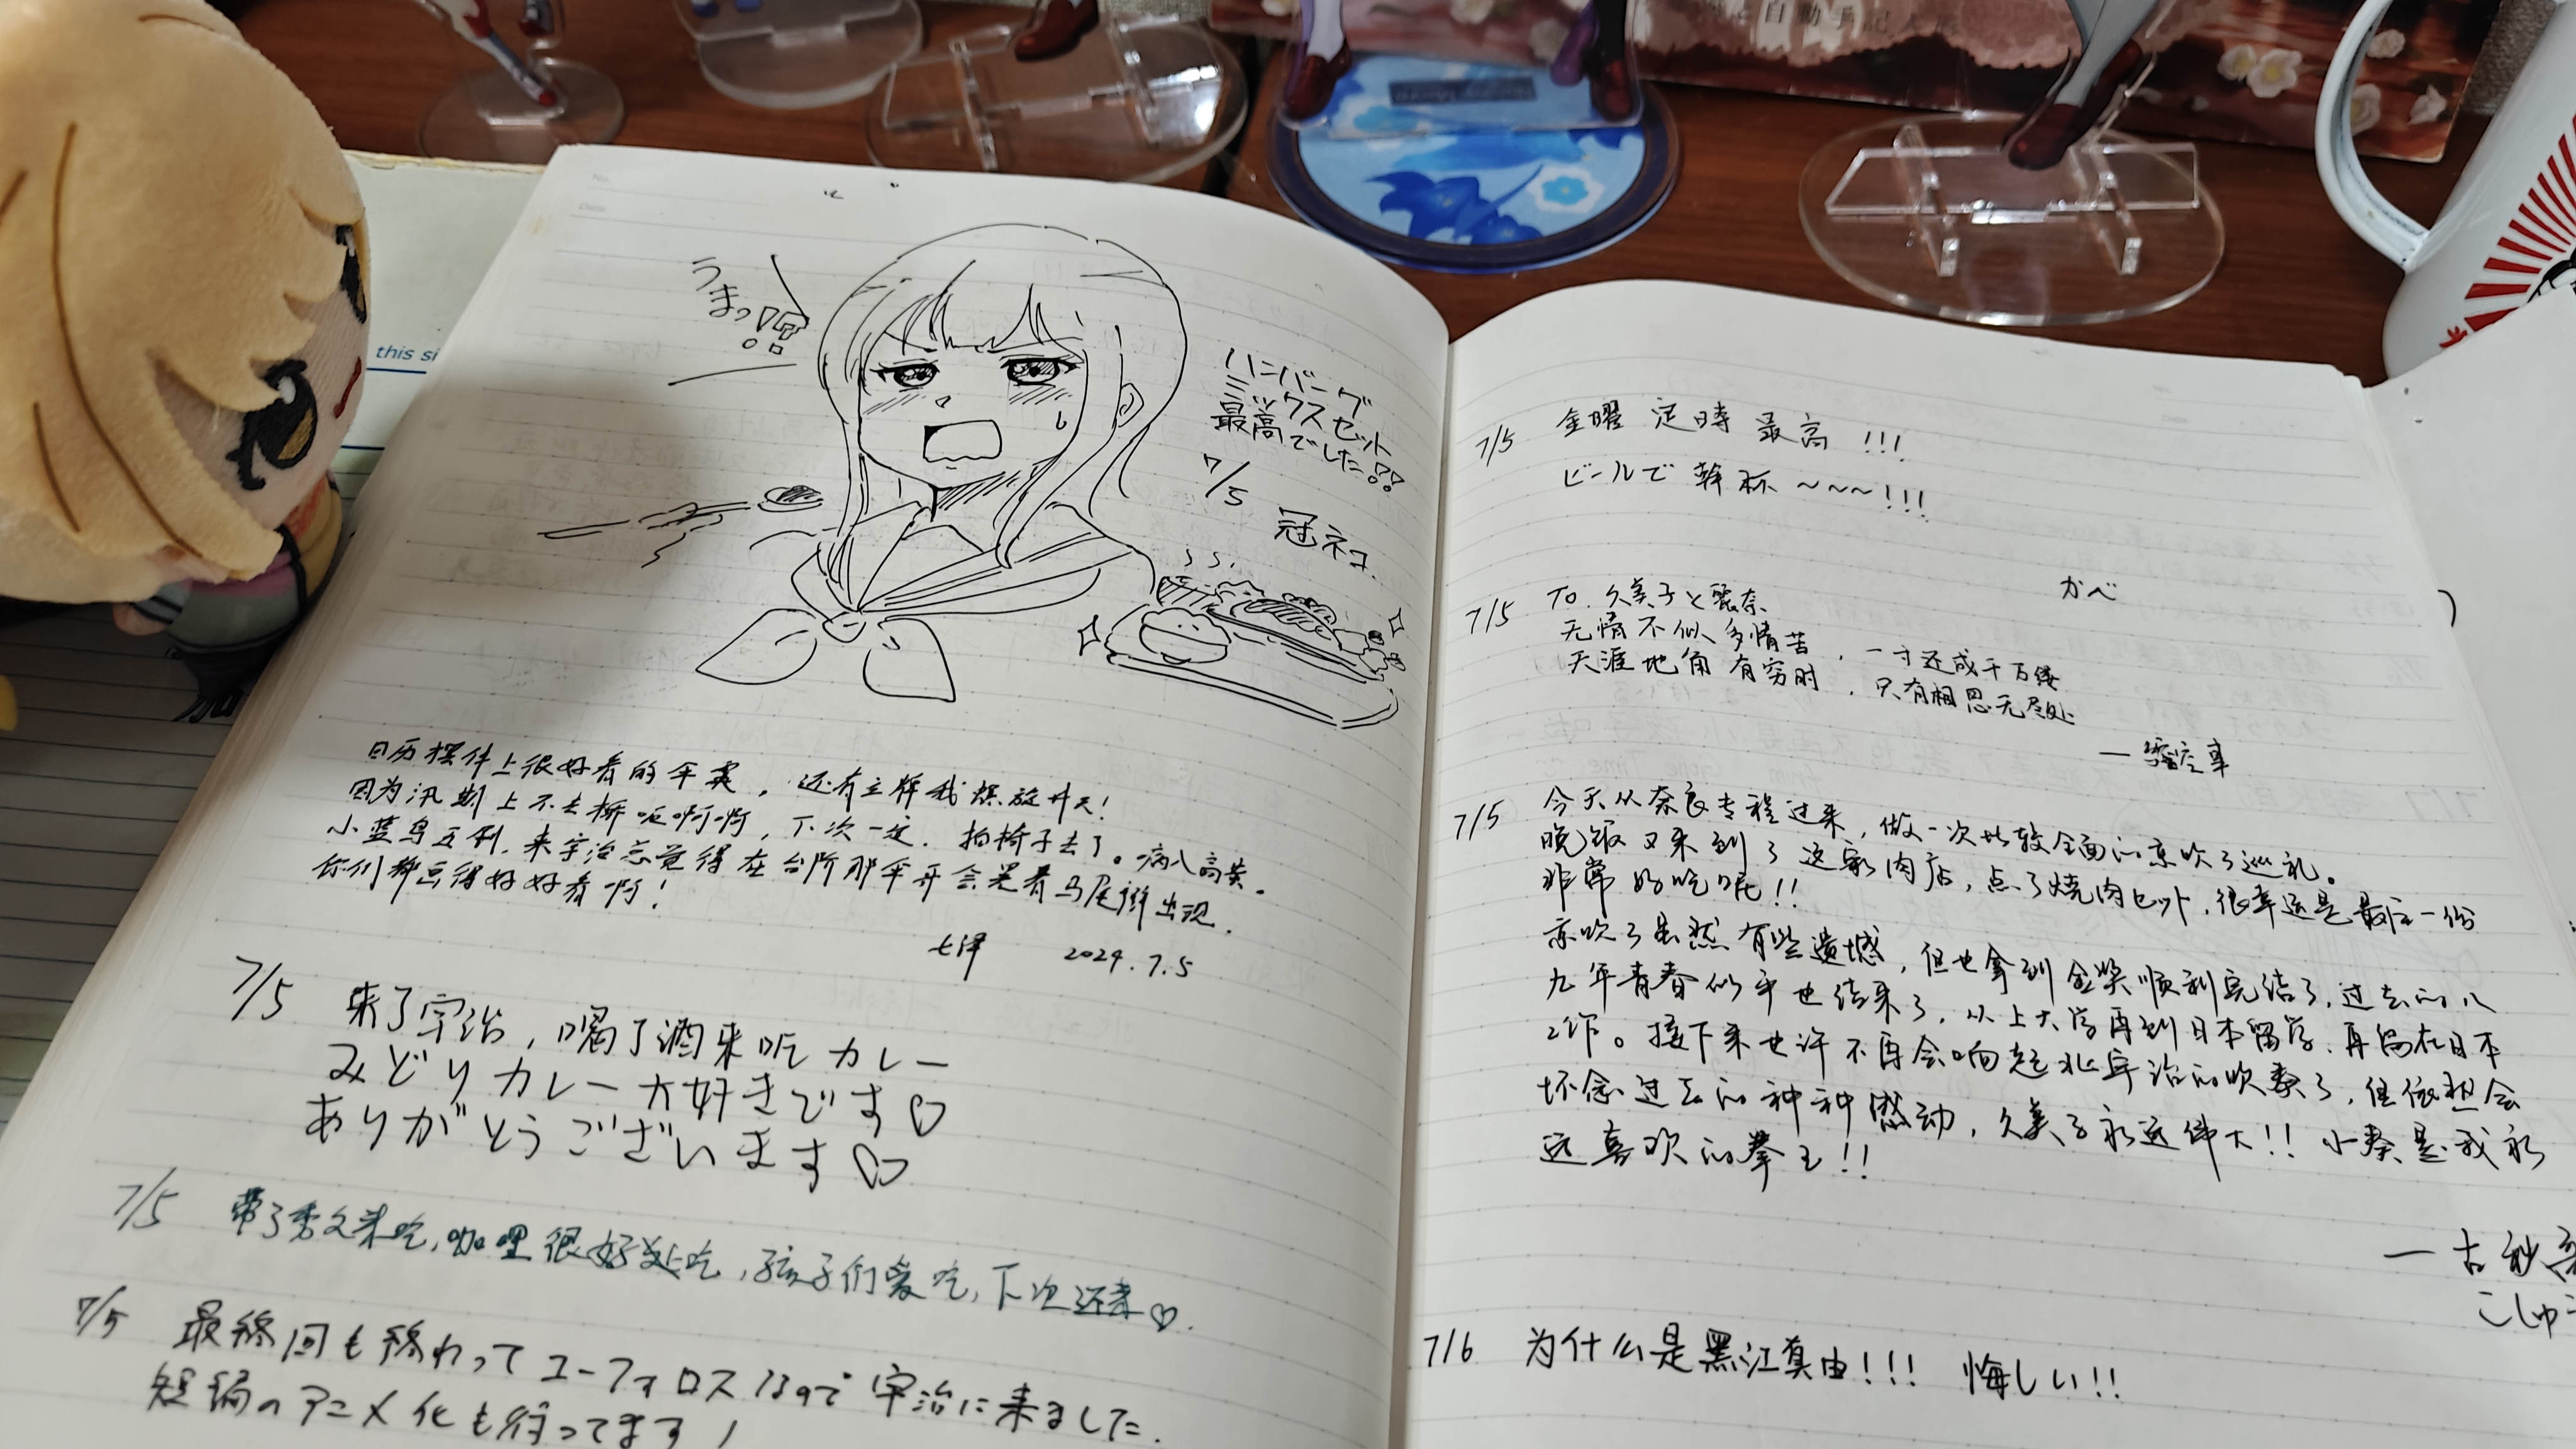 自動手記人形
this si
No.
Date
うまっ!!?
ハンバーグ
ミックスセット
最高でした!!
7/5
冠ネコ
日历摆件上很好看的
因为汛期上不去桥呃啊啊，下次一定.拍椅子去了。病入高黄。
小蓝鸟五刷.来宇治总觉得在台阶那
你们都画得好好看啊！
2024.7.5
7/5 来了宇治，喝了酒来吃カレー
みどりカレー大好きです♡
ありがとうございます♡
7/5 带了秀文来吃，咖哩很好处吃，孩子们爱吃，下次还来♡.
7/5 最終回も終わってユーフォロスなので宇治に来ました.
短編のアニメ化も待ってます！
7/5 金曜 定時 最高 !!!
ビールで幹杯~~~!!!
かべ
7/5 TO. 久美子と麗奈
无情不似多情苦，一寸还成千万缕
天涯地角有穷时，只有相思无尽处
7/5 今天从奈良专程过来，做一次比较全面的京吹了巡礼。
晚饭又来到了这家肉店，点了烧肉セット，很幸运是最后一份
非常好吃呢!!
京吹了虽然有些遗憾，但也拿到金奖顺利完结了，过去的八
九年青春似乎也结束了，从上大学再到日本留学，再留在日本
工作。接下来也许不再会响起北宇治的吹奏了，但依然会
怀念过去的种种感动，久美子永远伟大!! 小奏是我永
远喜欢的拳王!!
7/6 为什么是黑江真由!!! 悔しい!!